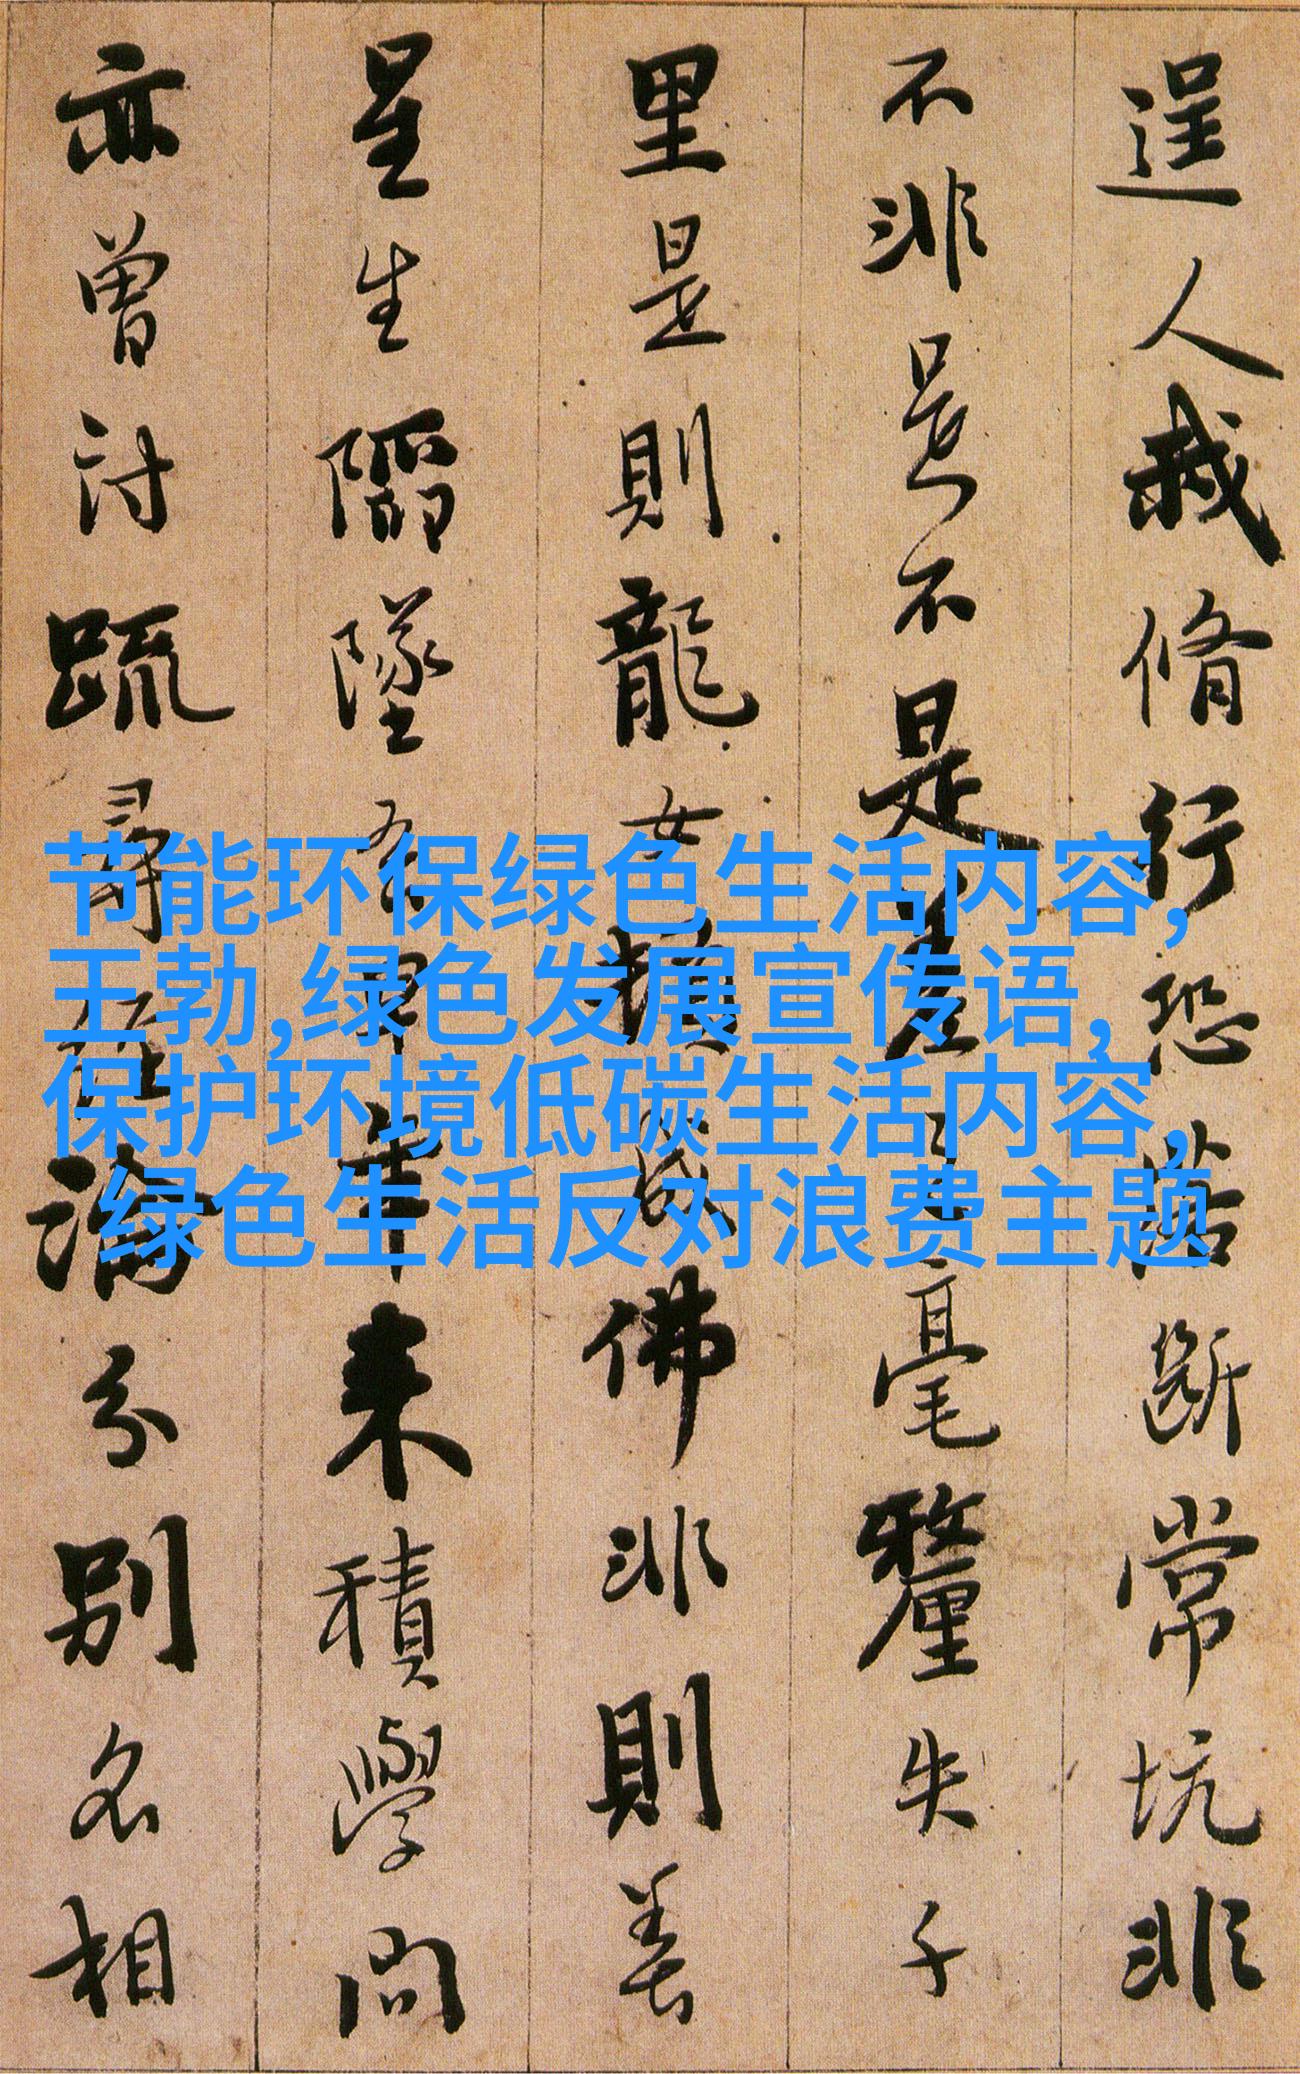 逞人我脩行恐落斷常坑非
不非是不是差之毫釐失千
里是則龍女頓成佛非則善
星生陷墜吾早年來積學問
亦曾討疏尋經論分別名相
节能环保绿色生活内容,
王勃,绿色发展宣传语,
保护环境低碳生活内容,
绿色生活反对浪费主题